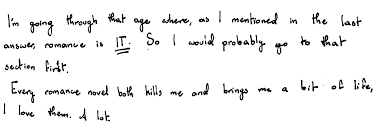 I'm going through that age where, as I mentioned in the last
answer, romance is IT. So I would probably go to that
section first.
Every romance novel both kills me and brings me a bit of life,
I love them. A lot